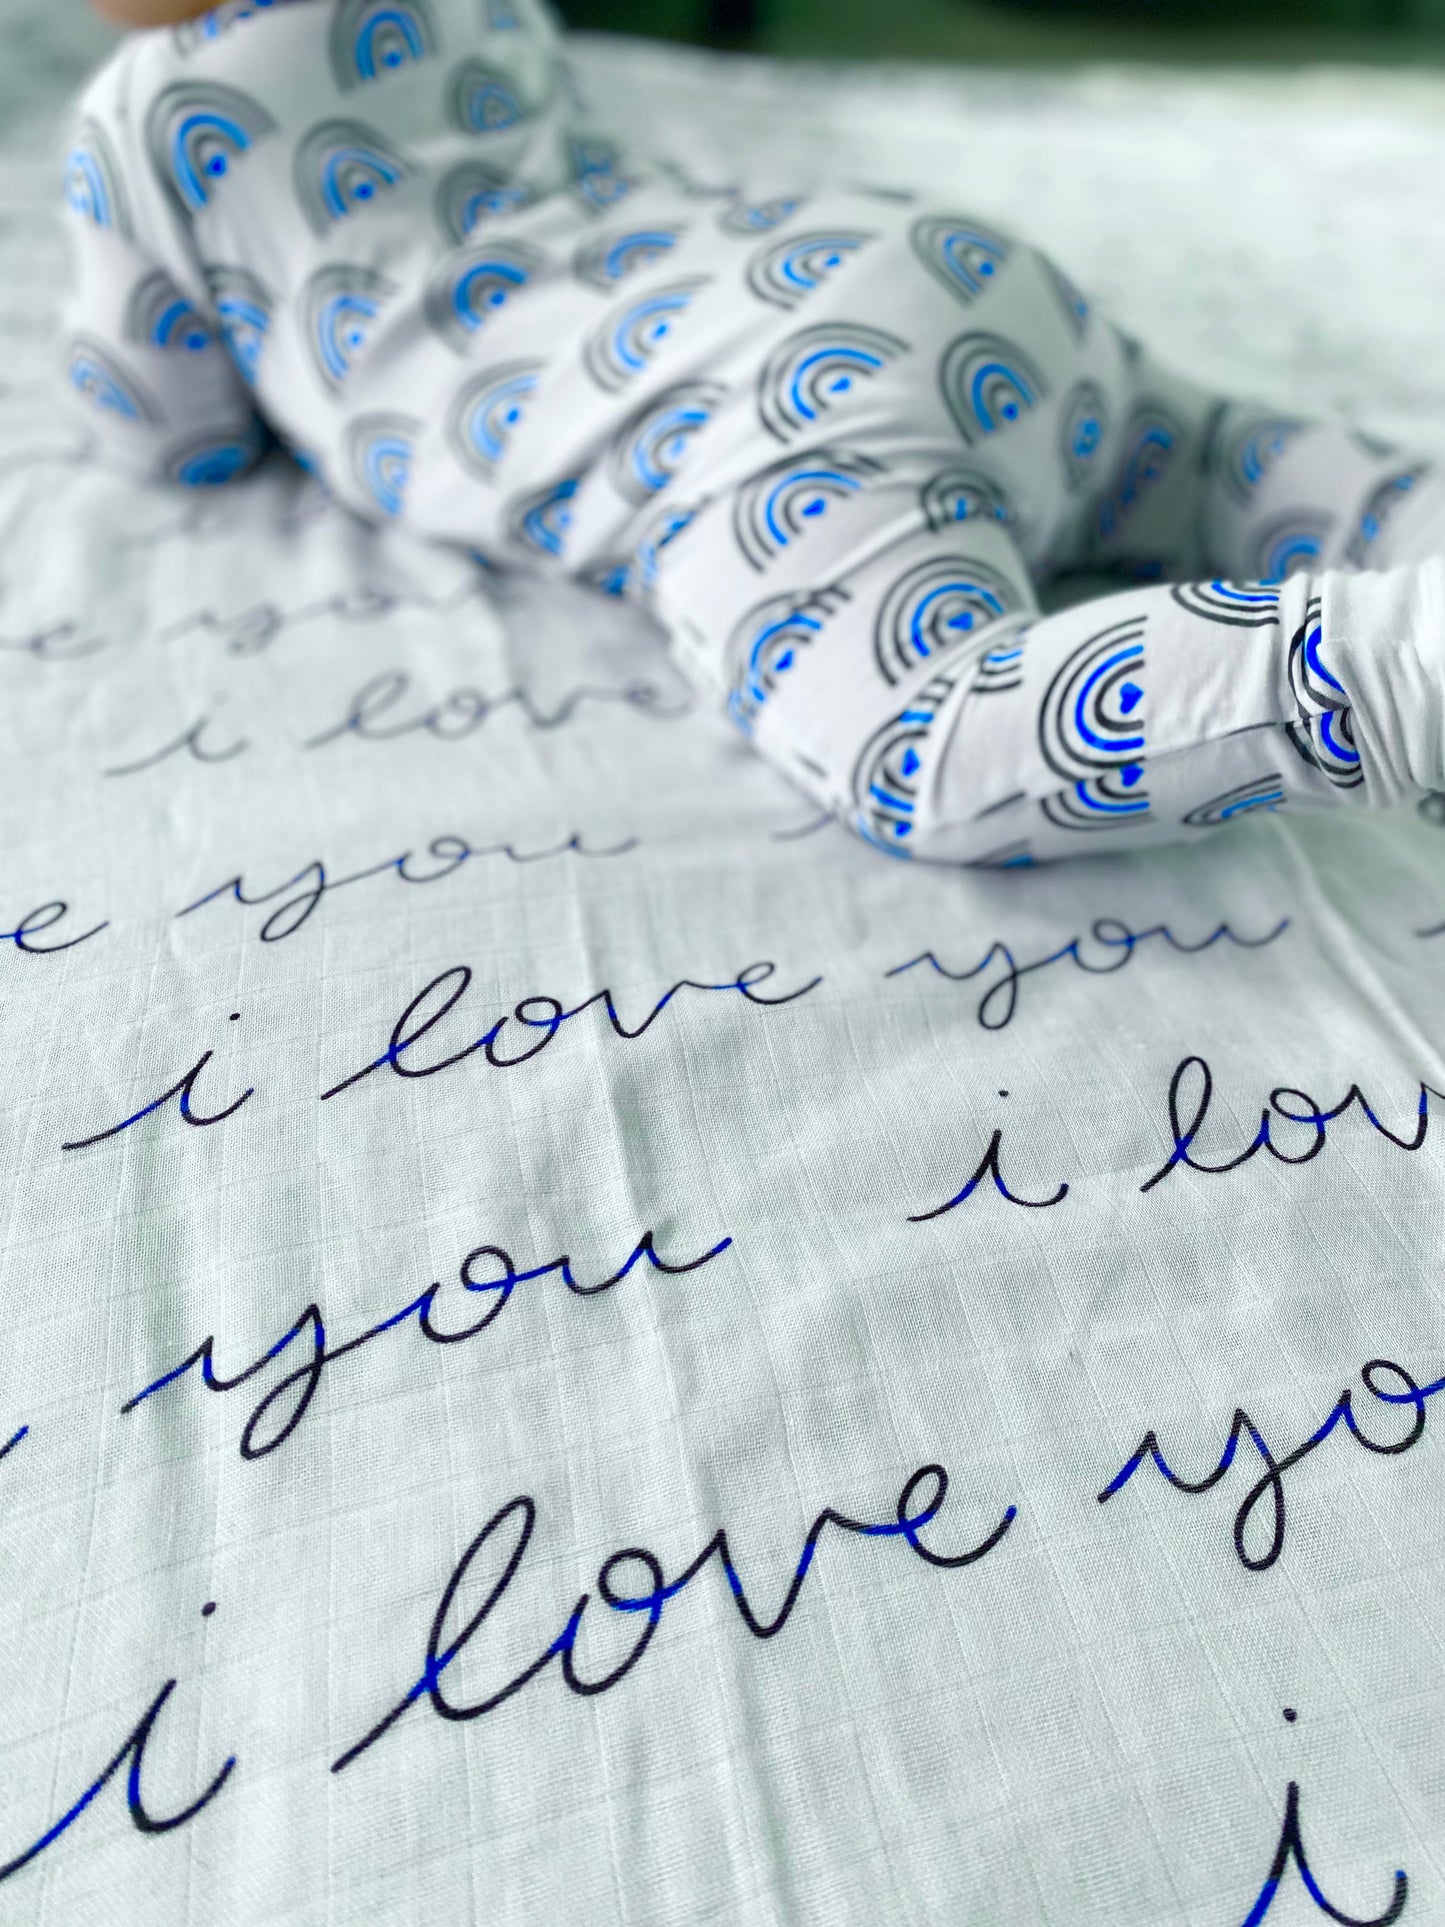 you
i love
e you
i love you
you i lov
i love yo
i